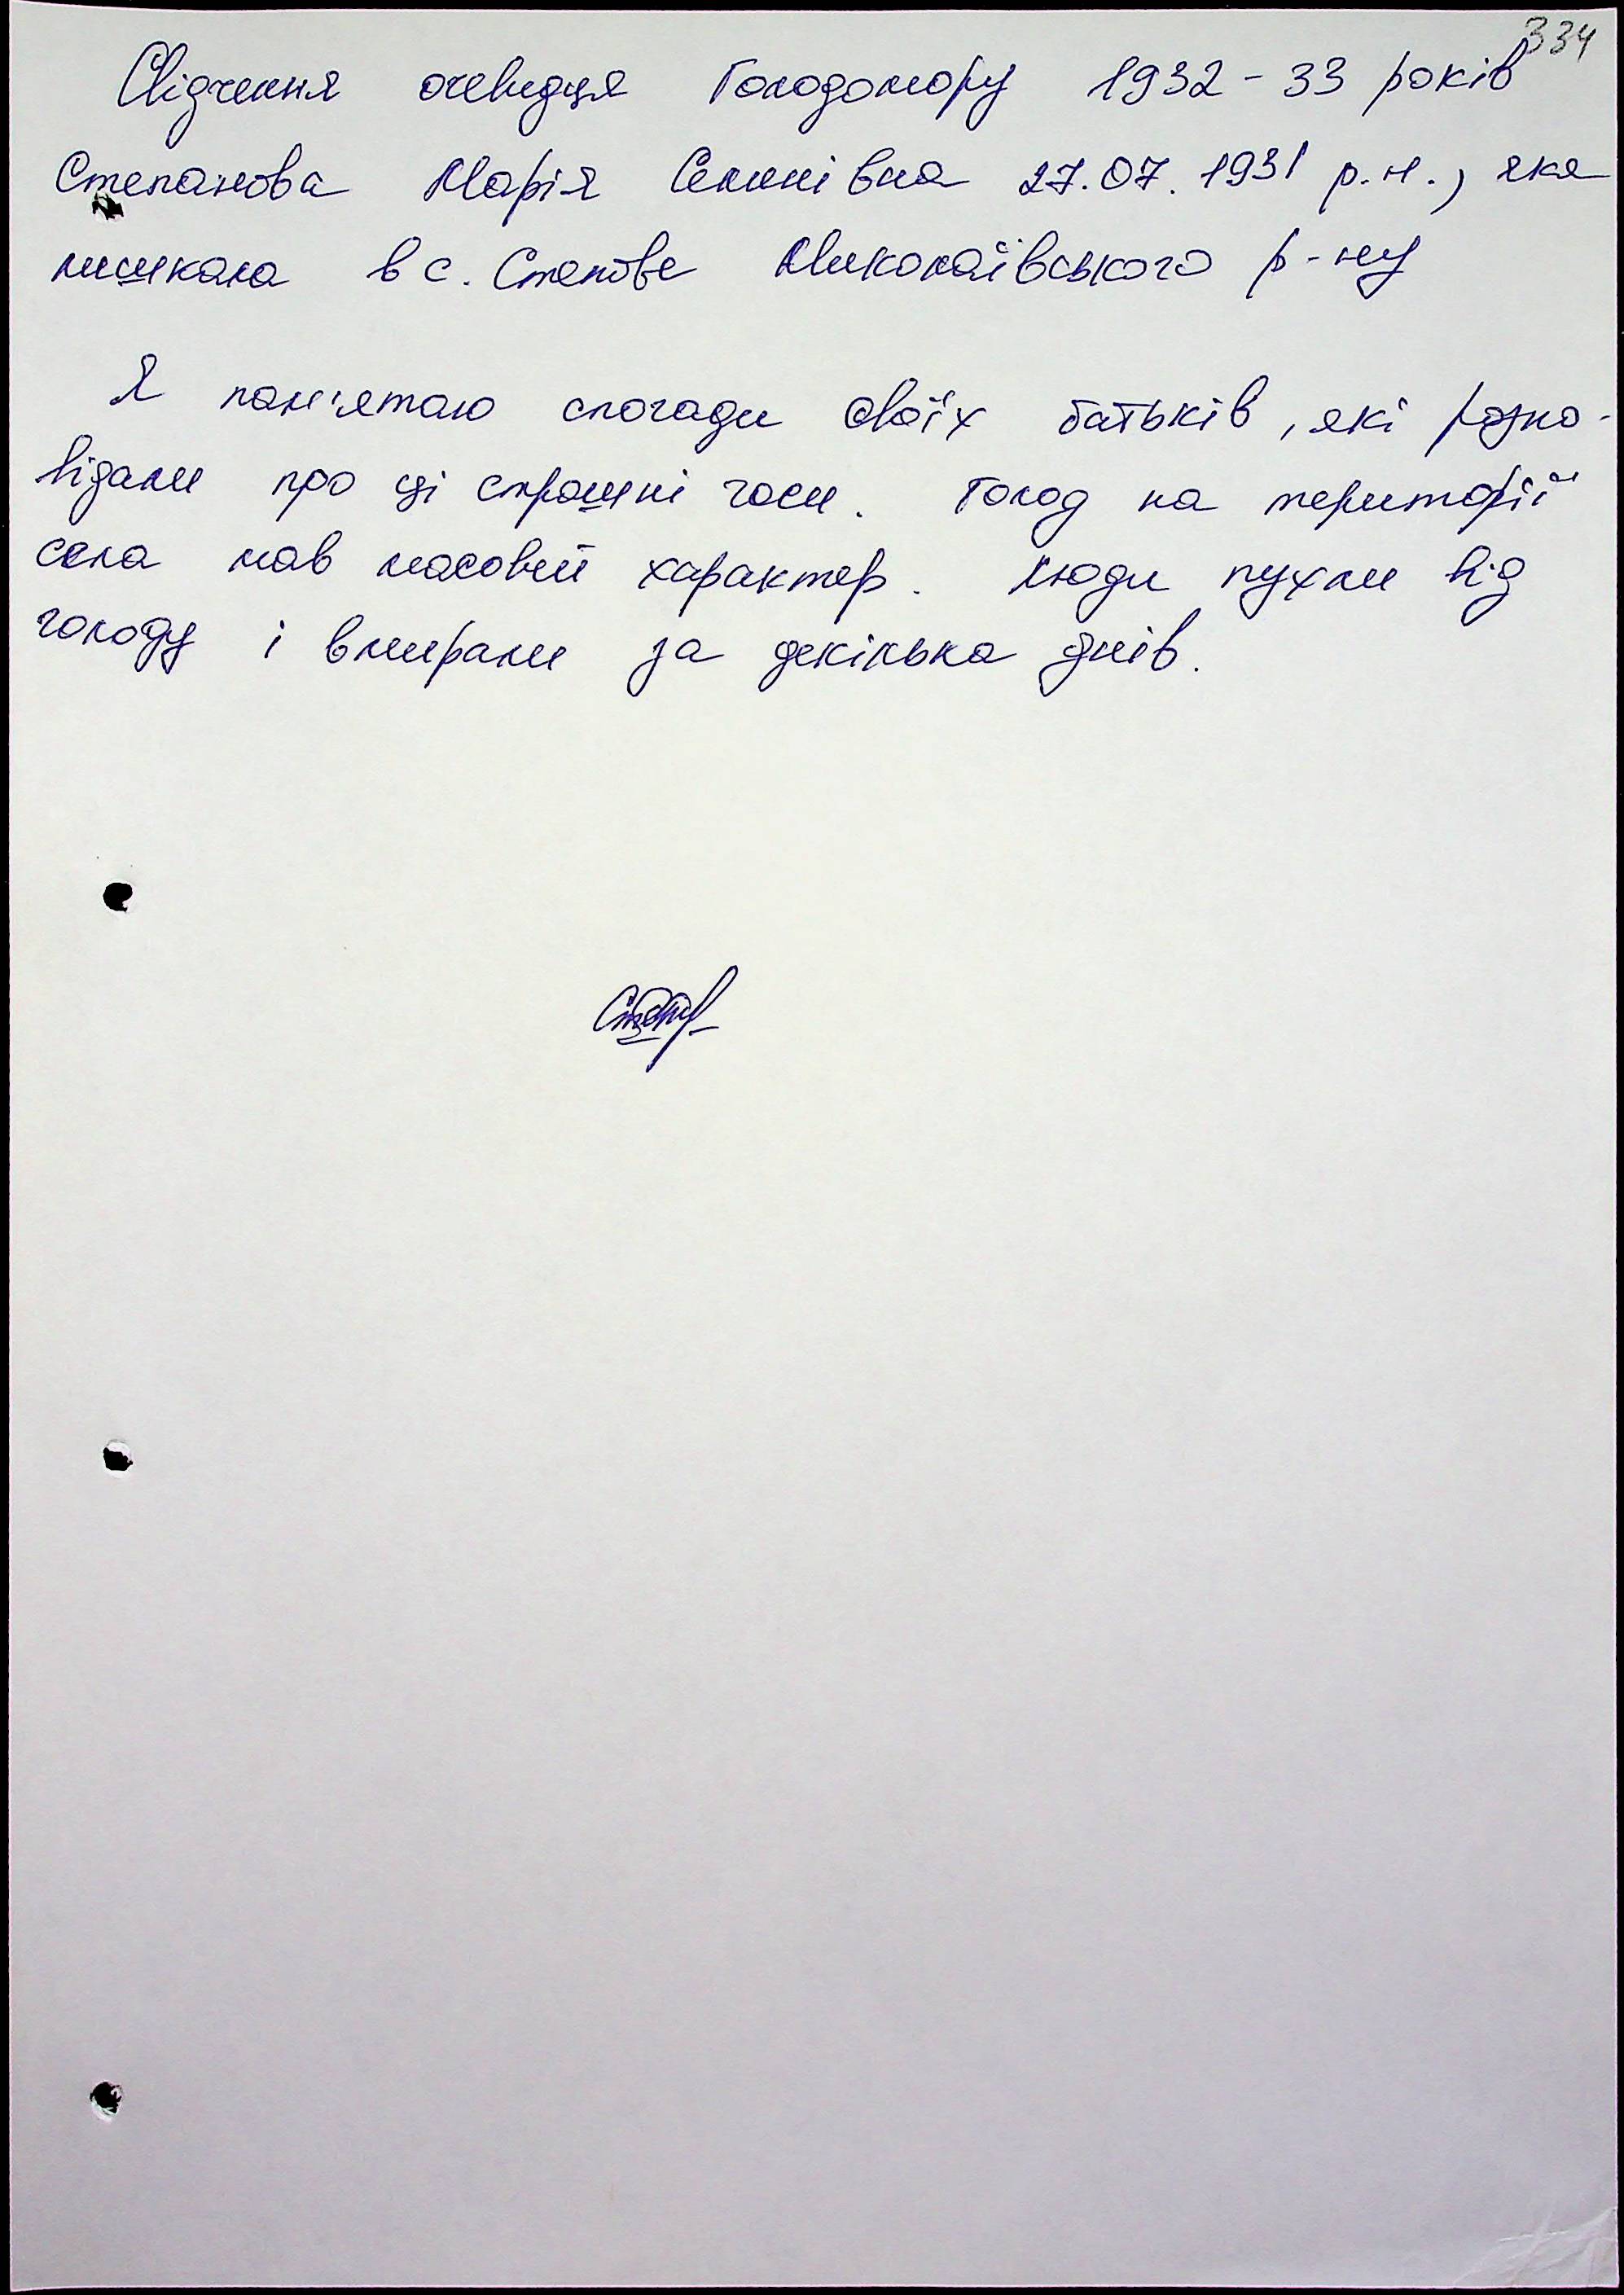 334
Свідчення очевидця Голодомору 1932-33 років
Степанова Марія Семенівна 27.07.1931 р.н., яка
мешкала в с. Степове Миколаївського р-ну
Я пам'ятаю спогади своїх батьків, які розпо-
відали про ці страшні часи. Голод на території
села мав масовий характер. Люди пухли від
голоду і вмирали за декілька днів.